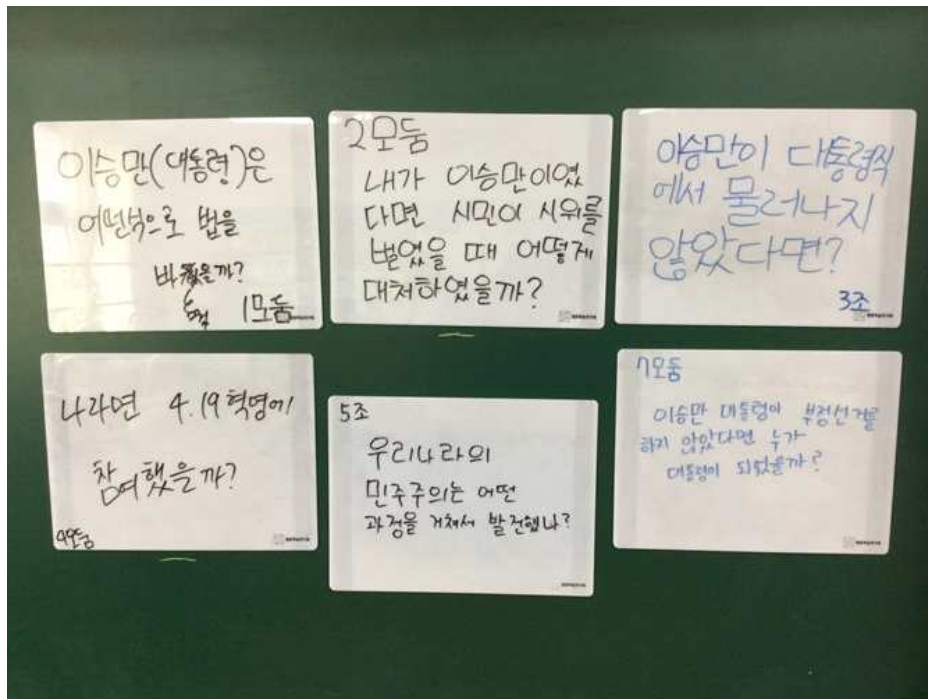 이승만(대통령)은
어떤식으로 법을
바꿨을까?
1모둠
2모둠
내가 이승만이였
다면 시민이 시위를
벌였을 때 어떻게
대처하였을까?
이승만이 대통령직
에서 물러나지
않았다면?
3조
나라면 4.19혁명에
참여했을까?
4모둠
5조
우리나라의
민주주의는 어떤
과정을 거쳐서 발전했나?
7모둠
이승만 대통령이 부정선거를
하지 않았다면 누가
대통령이 되었을까?